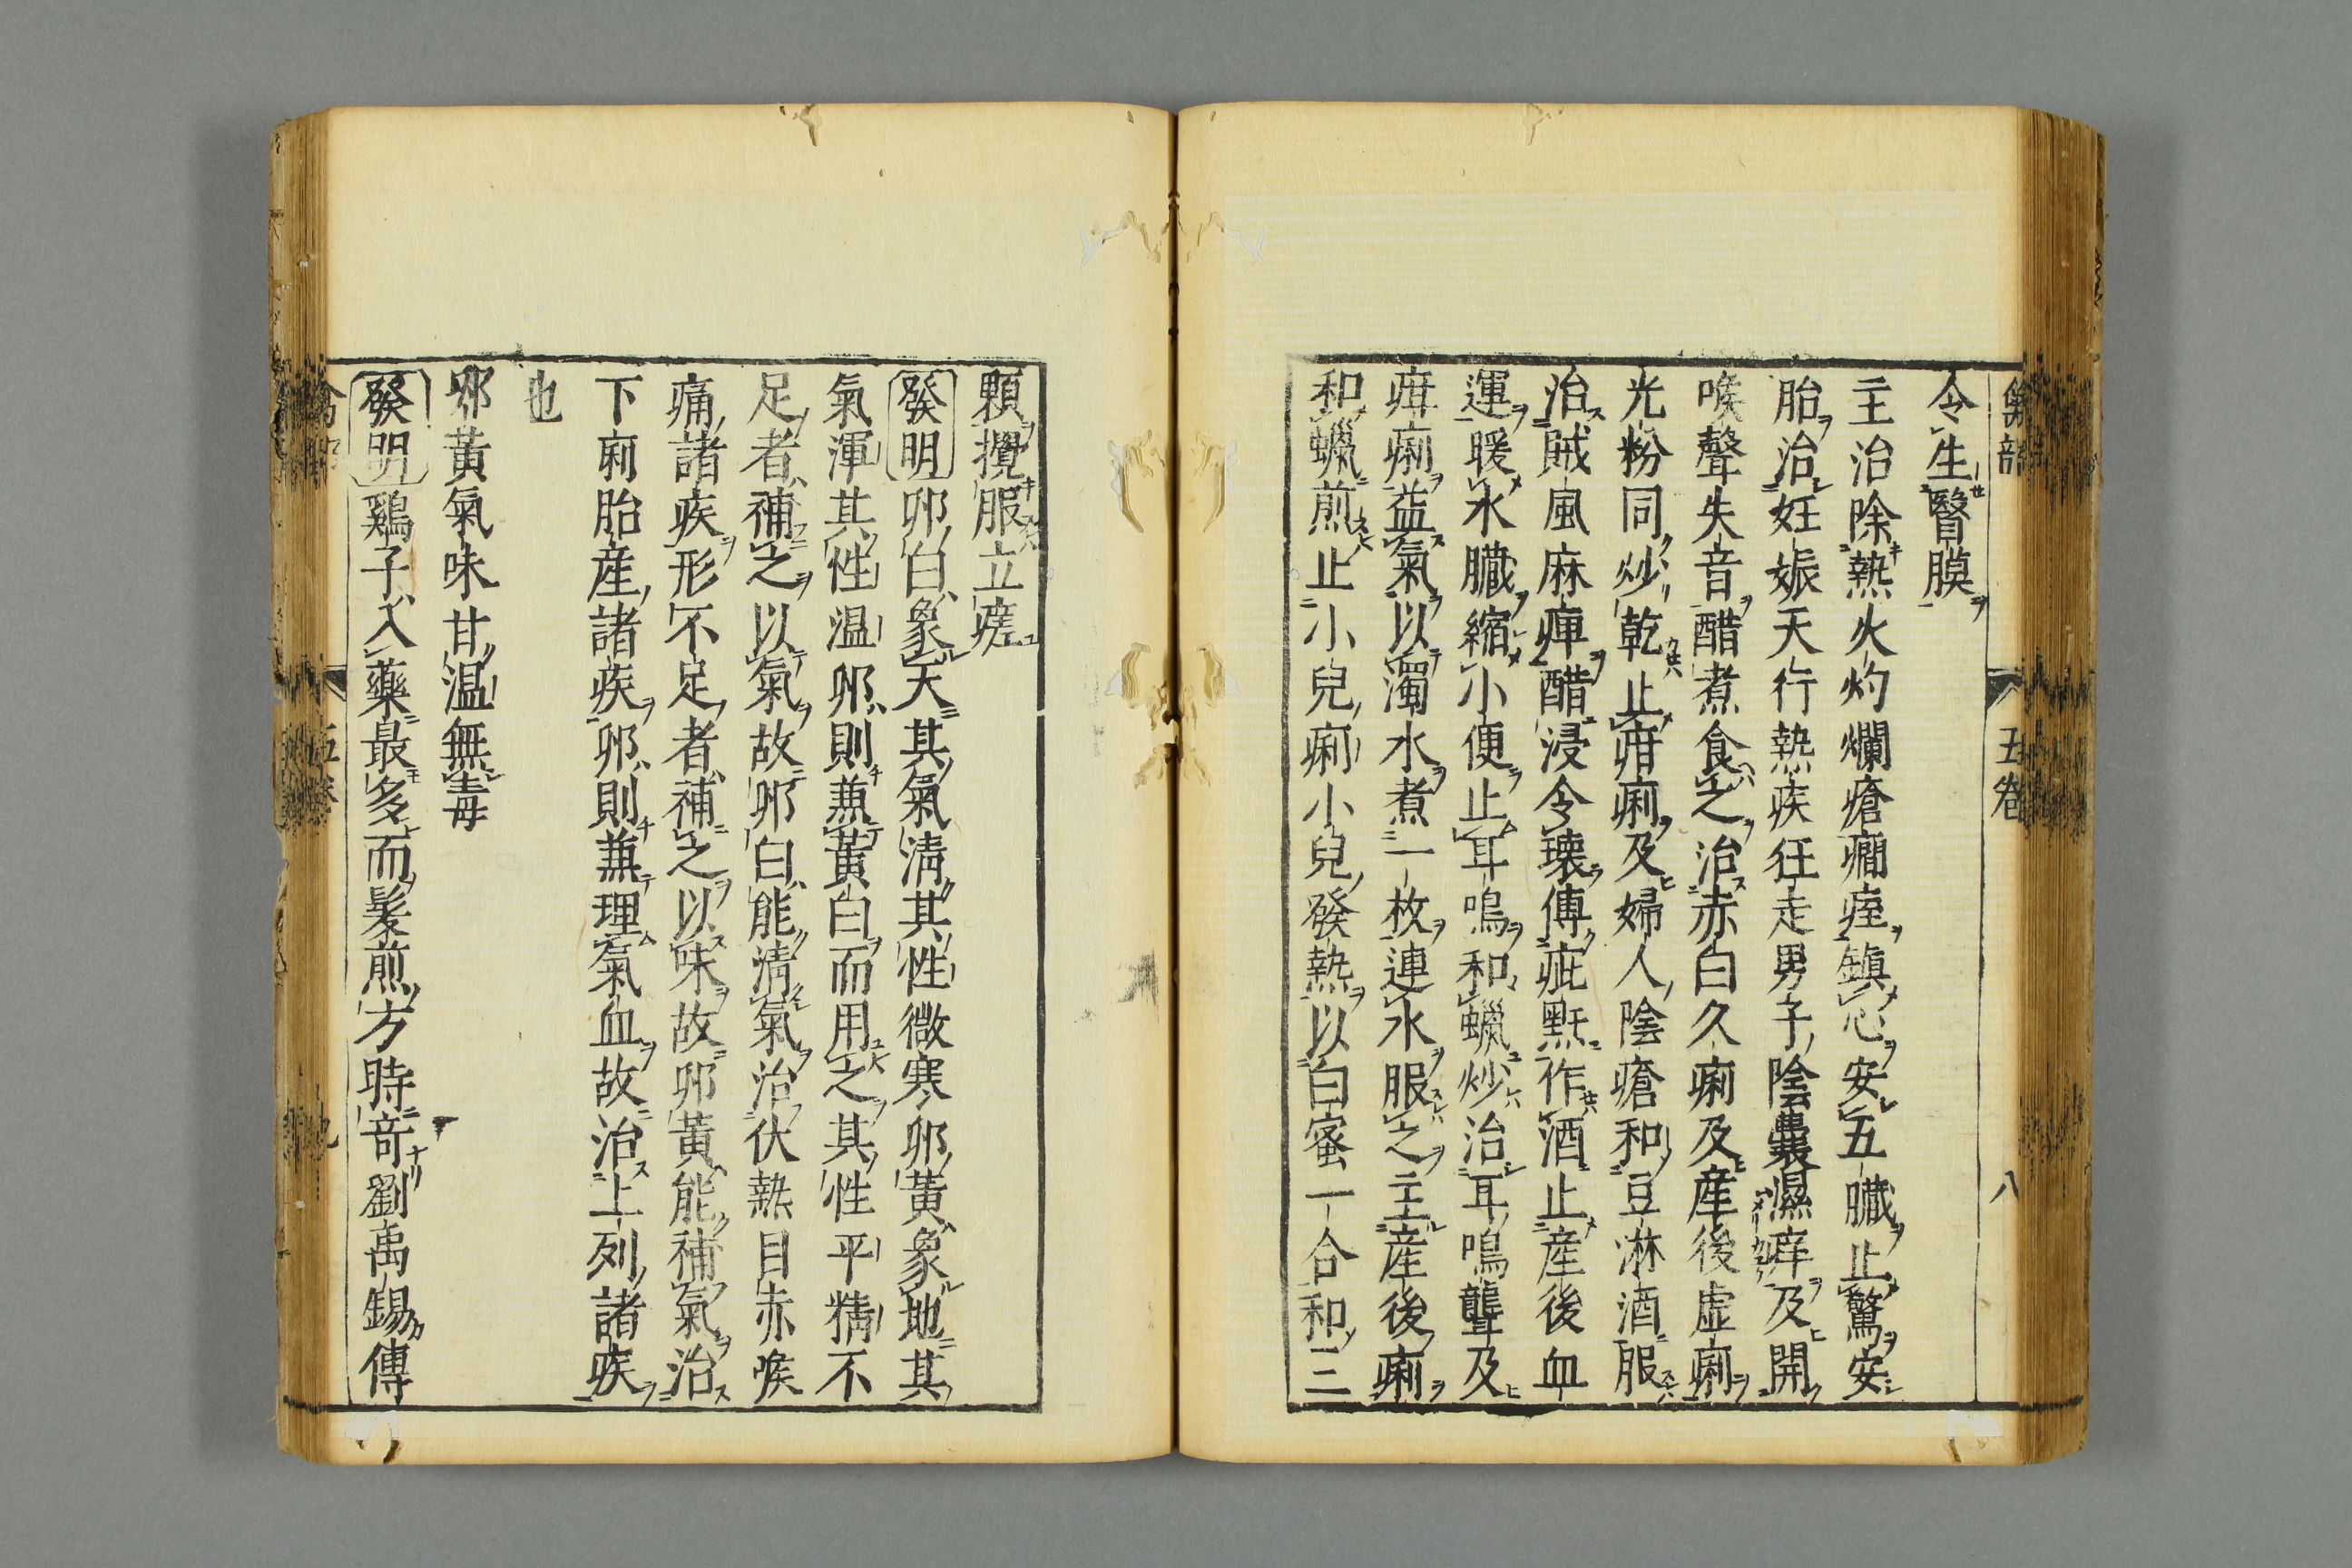 令生瞖膜
主治除熱火灼爛瘡癇痓鎮心安五臟止驚安
胎治妊娠天行熱疾狂走男子陰囊濕痒及開
喉聲失音醋煮食之治赤白久痢及産後虚痢
光粉同炒乾止疳痢及婦人陰瘡和豆淋酒服
治賊風麻痺醋浸令壊傅疵䵟作酒止産後血
運暖水臟縮小便止耳鳴和蠟炒治耳鳴聾及
疳痢益氣以濁水煮一枚連水服之主産後痢
和蠟煎止小兒痢小兒發熱以白蜜一合和三
五卷
八
顆攪服立瘥
發明卵白象天其氣清其性微寒卵黃象地其
氣渾其性温卵則兼黃白而用之其性平精不
足者補之以氣故卵白能清氣治伏熱目赤喉
痛諸疾形不足者補之以味故卵黃能補氣治
下痢胎産諸疾卵則兼理氣血故治上列諸疾
也
卵黃氣味甘温無毒
發明鷄子入藥最多而髪煎方時竒劉禹錫傳
禽部
五卷
九